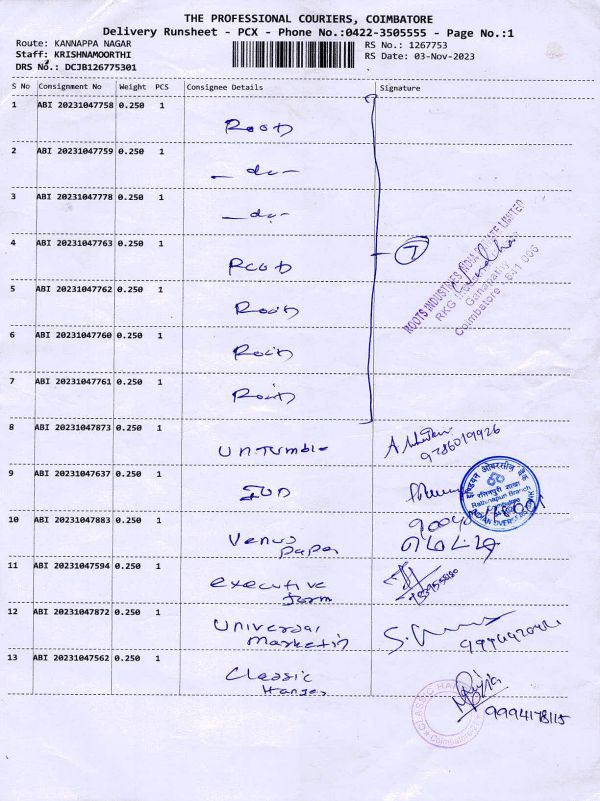 THE PROFESSIONAL COURIERS, COIMBATORE
Delivery Runsheet - PCX - Phone No.:0422-3505555 - Page No.:1
Route: KANNAPPA NAGAR
Staff: KRISHNAMOORTHI
DRS No.: DCJB126775301
RS No.: 1267753
RS Date: 03-Nov-2023
S No Consignment No Weight PCS Consignee Details Signature
1 ABI 20231047758 0.250 1 Root
2 ABI 20231047759 0.250 1 - do -
3 ABI 20231047778 0.250 1 - do -
4 ABI 20231047763 0.250 1 Root
7
ROOTS INDUSTRIES INDIA PRIVATE LIMITED
RKG
Ganapathy
Coimbatore - 641 006
5 ABI 20231047762 0.250 1 Root
6 ABI 20231047760 0.250 1 Root
7 ABI 20231047761 0.250 1 Root
8 ABI 20231047873 0.250 1 Untumble
9786019926
9 ABI 20231047637 0.250 1
इण्डियन ओवरसीज़ बैंक
Rathinapuri Branch
INDIAN OVERSEAS BANK
10 ABI 20231047883 0.250 1 Venus
paper
11 ABI 20231047594 0.250 1 executive
12 ABI 20231047872 0.250 1 Universal
marketin
13 ABI 20231047562 0.250 1 Classic
Hanger
CLASSIC HANGER
Coimbatore
9994178115